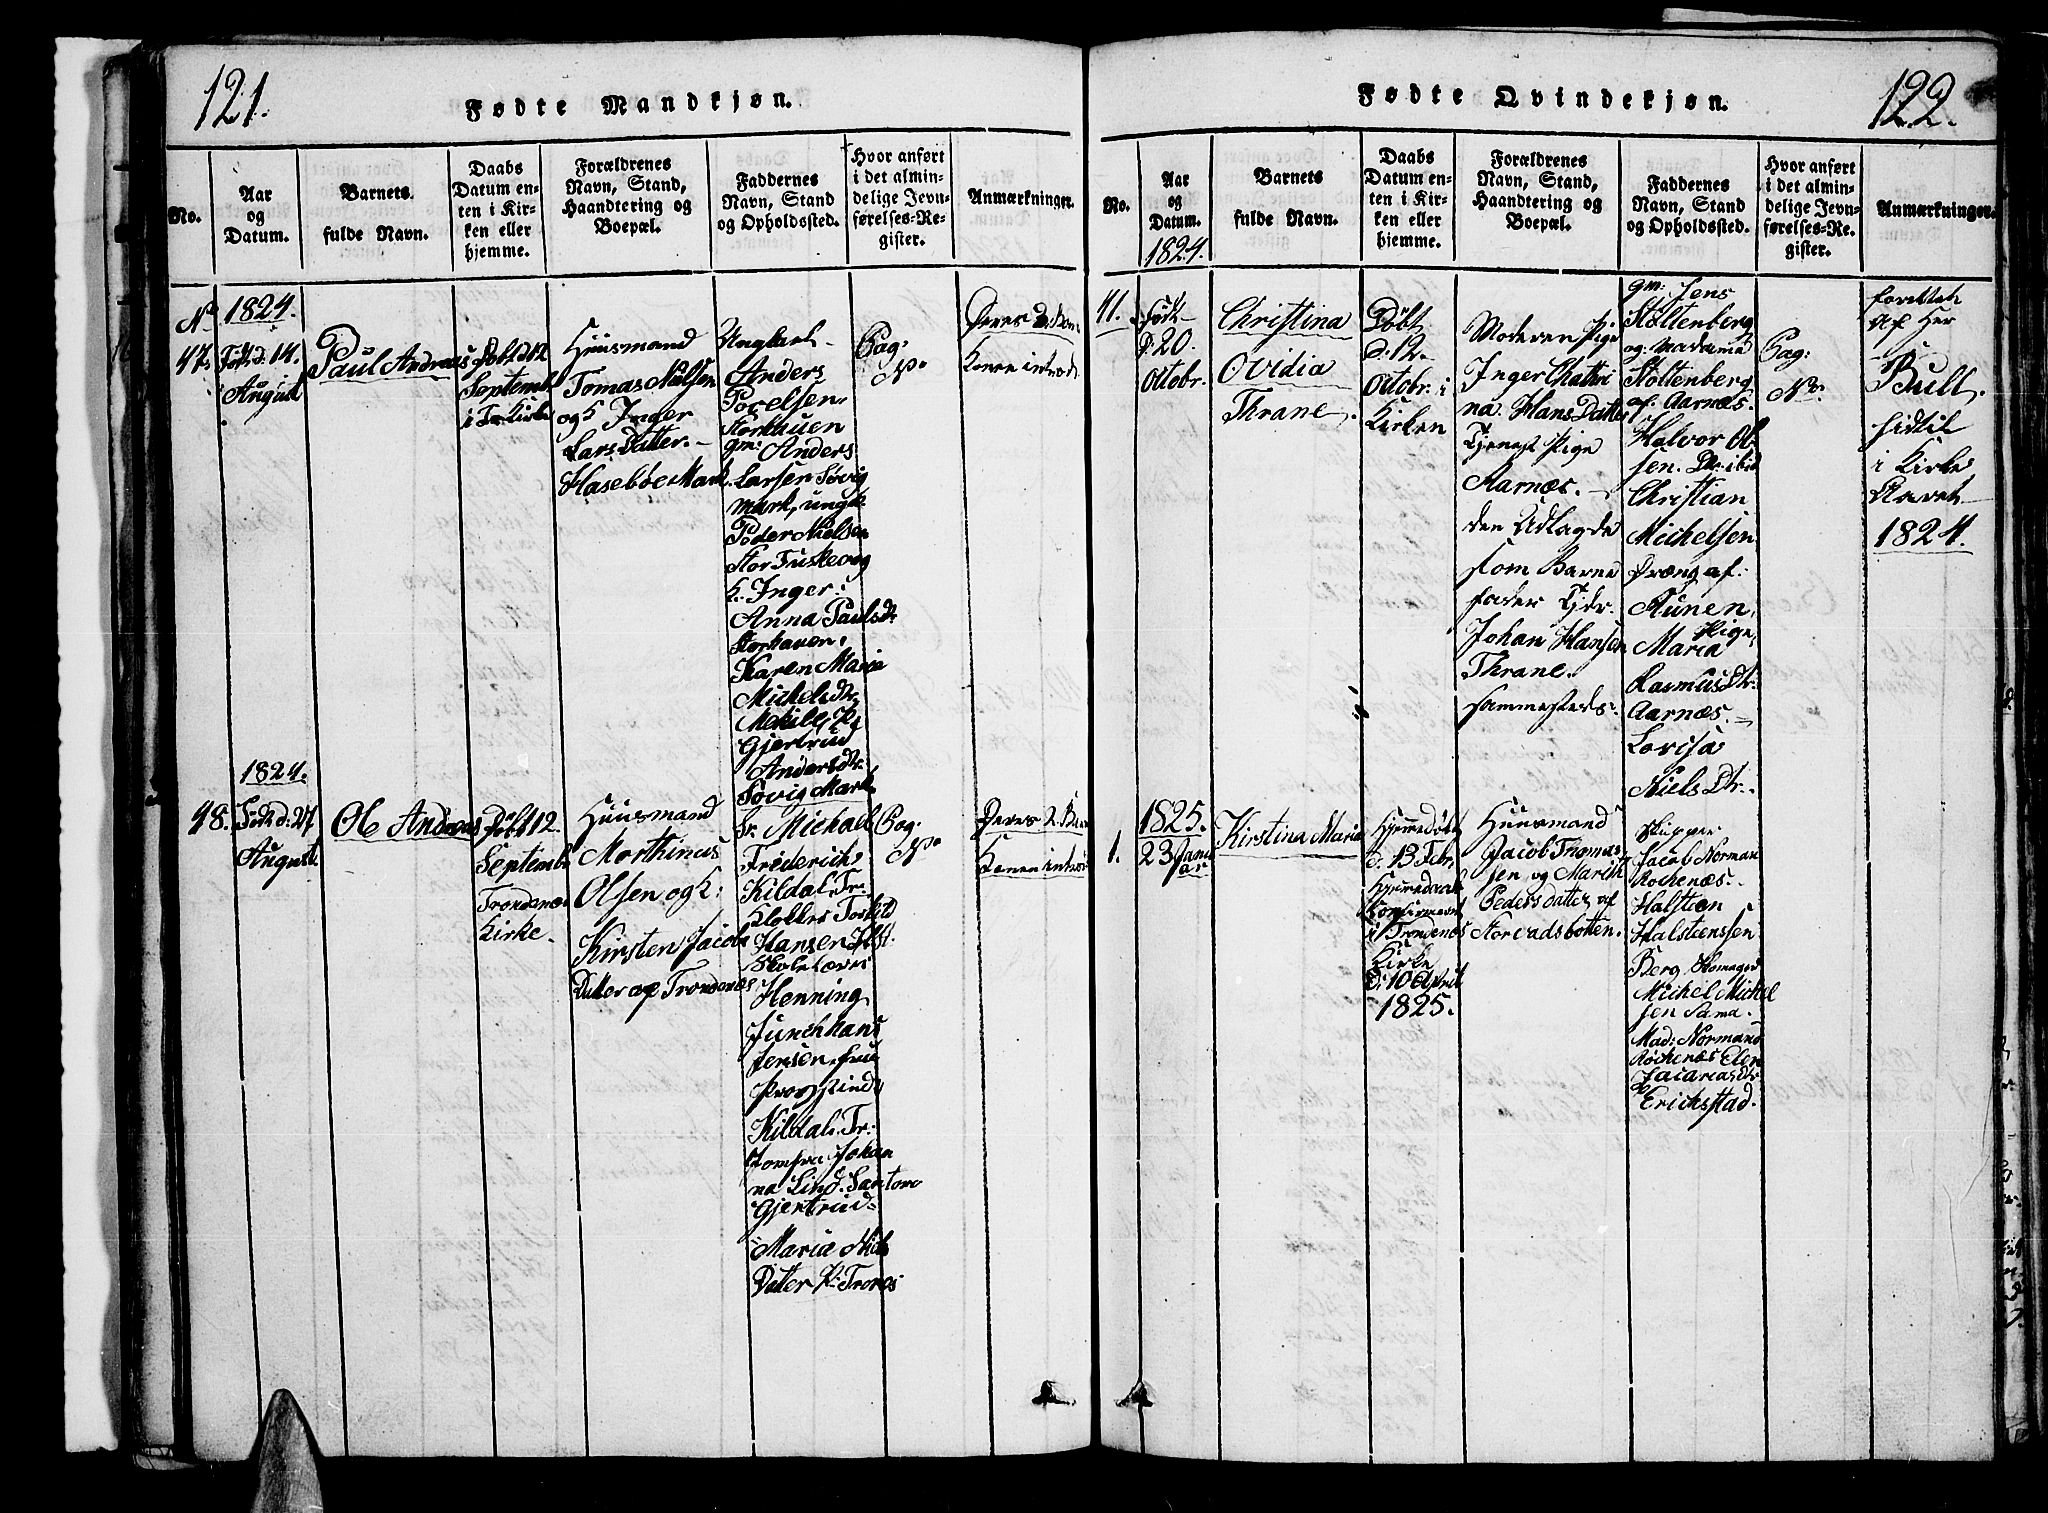 121.
Fødte Mandkjøn.
No.
Aar
og
Datum.
Barnets
fulde Navn.
Daabs
Datum en-
ten i Kir-
ken eller
hjemme.
Forældrenes
Navn, Stand,
Haandtering og
Boepæl.
Faddernes
Navn, Stand
og Opholdssted.
Hvor anført
i det almin-
delige Jevn-
førelses-Re-
gister.
Anmærkninger.
No
47.
1824.
Født d: 14.
August
Paul Andreas
Døbt d 12
Septembr
i Tr. Kirke
Huusmand
Tomas Nielsen
og K Inger
Lars Datter.
Hasebøe Mark
Ungkarl
Anders
Povelsen
Storhauen
gm: Anders
Larsen Søvig
mark, ungk.
Peder Nielsen
Stor
K. Inger
Anna Paulsdr
Storhauen.
Karen Maria
Michelsdr.
Gjertrud
Andersdr.
Søvig Mark.
Pag:
No
Deres 2. Barn
Konen introd.
48.
1824.
Født d: 27
August.
Ole Andreas
Døbt 12.
Septembr
Trondenæs
Kirke.
Huusmand
Morthinus
Olsen og K:
Kirsten Jacobs
Datter af Trondenæs
Hr. Michael
Friderich
Kildal. Tr:
Klokker Toskild
Hansen
Skolelærer
Henning
Junghans
Jensen, frue
Kildal. Tr:
Jomfru Johan
na Lind.
Gjertrud
Maria Niels
Datter
Pag:
No
Deres 2. Barn
Konen introd
122.
Fødte Qvindekjøn.
No.
Aar
og
Datum.
1824.
Barnets
fulde Navn.
Daabs
Datum en-
ten i Kir-
ken eller
hjemme.
Forældrenes
Navn, Stand,
Haandtering og
Boepæl.
Faddernes
Navn, Stand
og Opholdssted.
Hvor anført
i det almin-
delige Jevn-
førelses-Re-
gister.
Anmærkninger.
41.
Født
D. 20.
Octobr.
Christina
Ovidia
Thrane.
Døbt
d. 12.
Octobr. i
Kirken
Moderen Pige
Inger Chathri
na Hans Datter
Tjenest Pige
Aarnæs.
den Udlagde
som Barne
fader Tjdr.
Johan Hansen
Thrane
sammesteds.
gm: Jens
Stoltenberg
og Madame
Stoltenberg
af Aarnæs.
Halvor Ol
sen. Dr. ibid
Christian
Michelsen
Dræng af
Aunen,
Pige,
Maria
Rasmus Dtr:
Aarnæs.
Lovisa
Niels Dtr.
Pag:
No.
forettet
af Her
Bull.
sidtil
i Kirke
Aaret
1824.
1.
1825.
23 Janu
ar
Kirstina Maria
Hjemmedøbt
d. 13 Febr.
Hjemmedaab
Confirmeret
i Trondenæs
Kirke
D: 10 April
1825.
Huusmand
Jacob Thomas
sen og Marith
Peders datter af
Storvadsbotten.
Skipper
Jacob Norman
Røchenæs.
Halsteen
Halsteenssen
Berg
Michel Michel
sen Sama.
Mad: Normand
Røchenæs Elen
Zacariasdr
Erichstad.